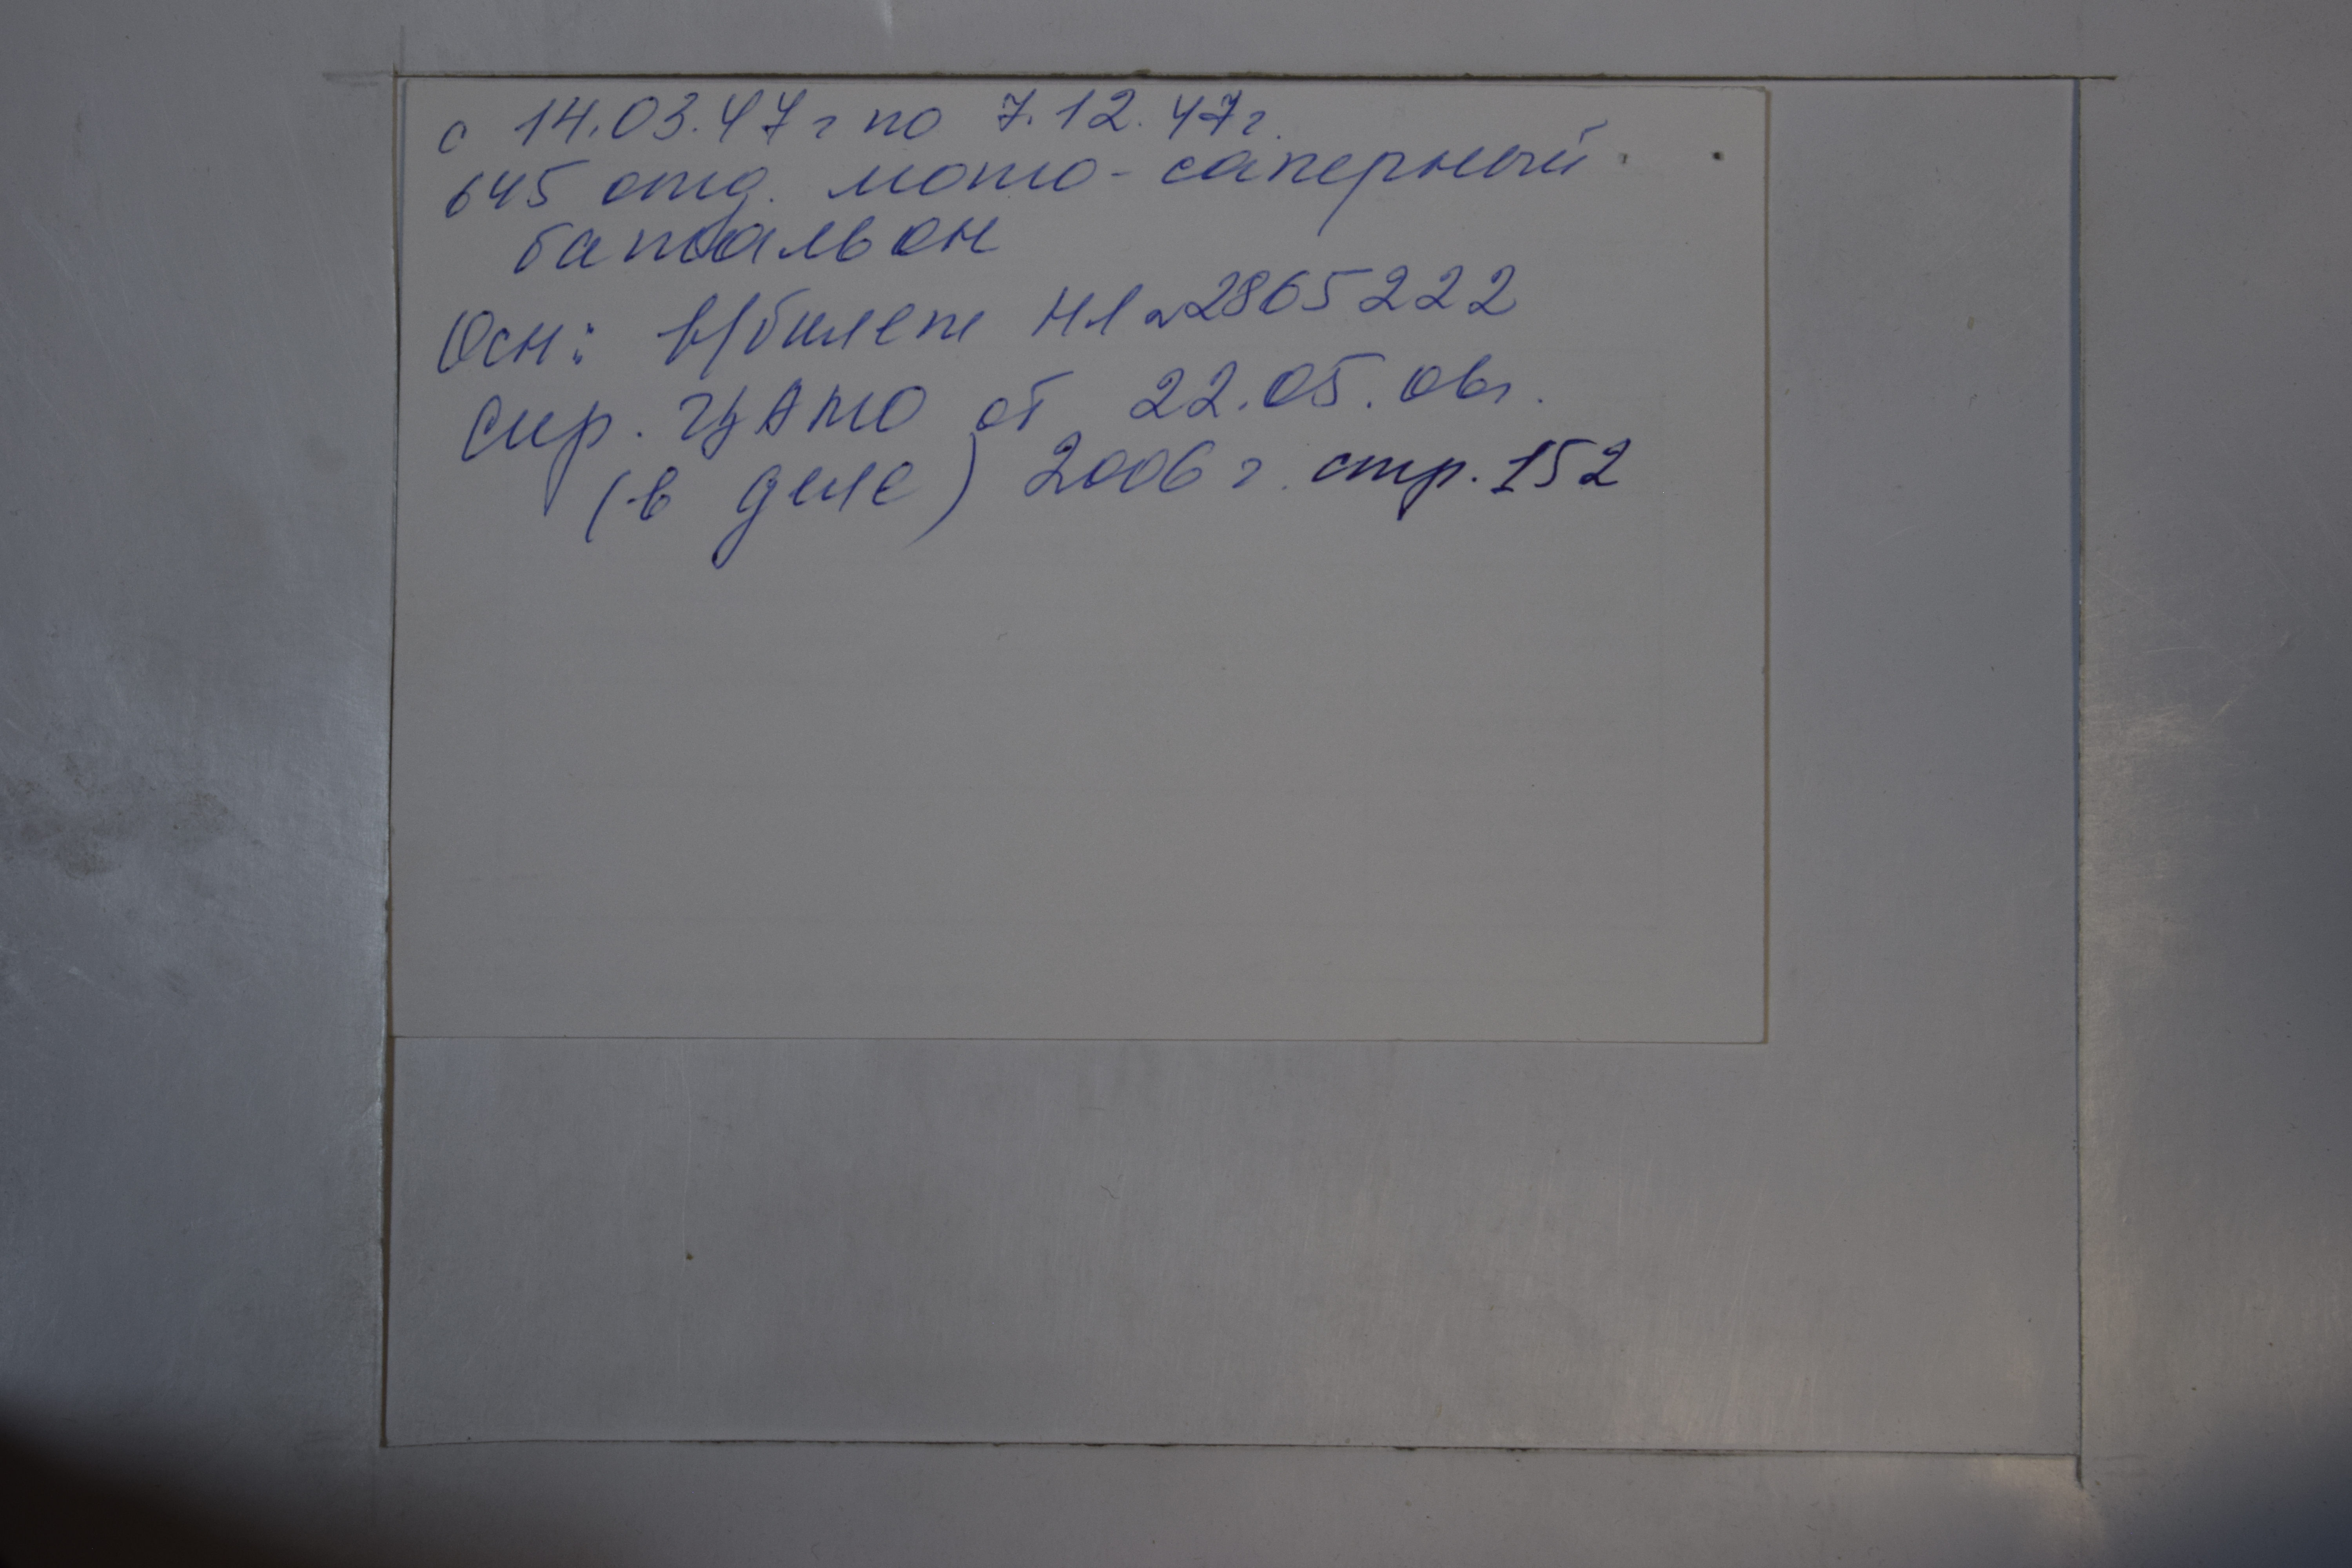 с 14.03.47г по 7.12.47г.
645 отд. мото-саперный
батальон
Осн: в/билет НЛ 2865222
Спр. ЦАМО от 22.05.06г.
(в деле) 2006г. стр. 152